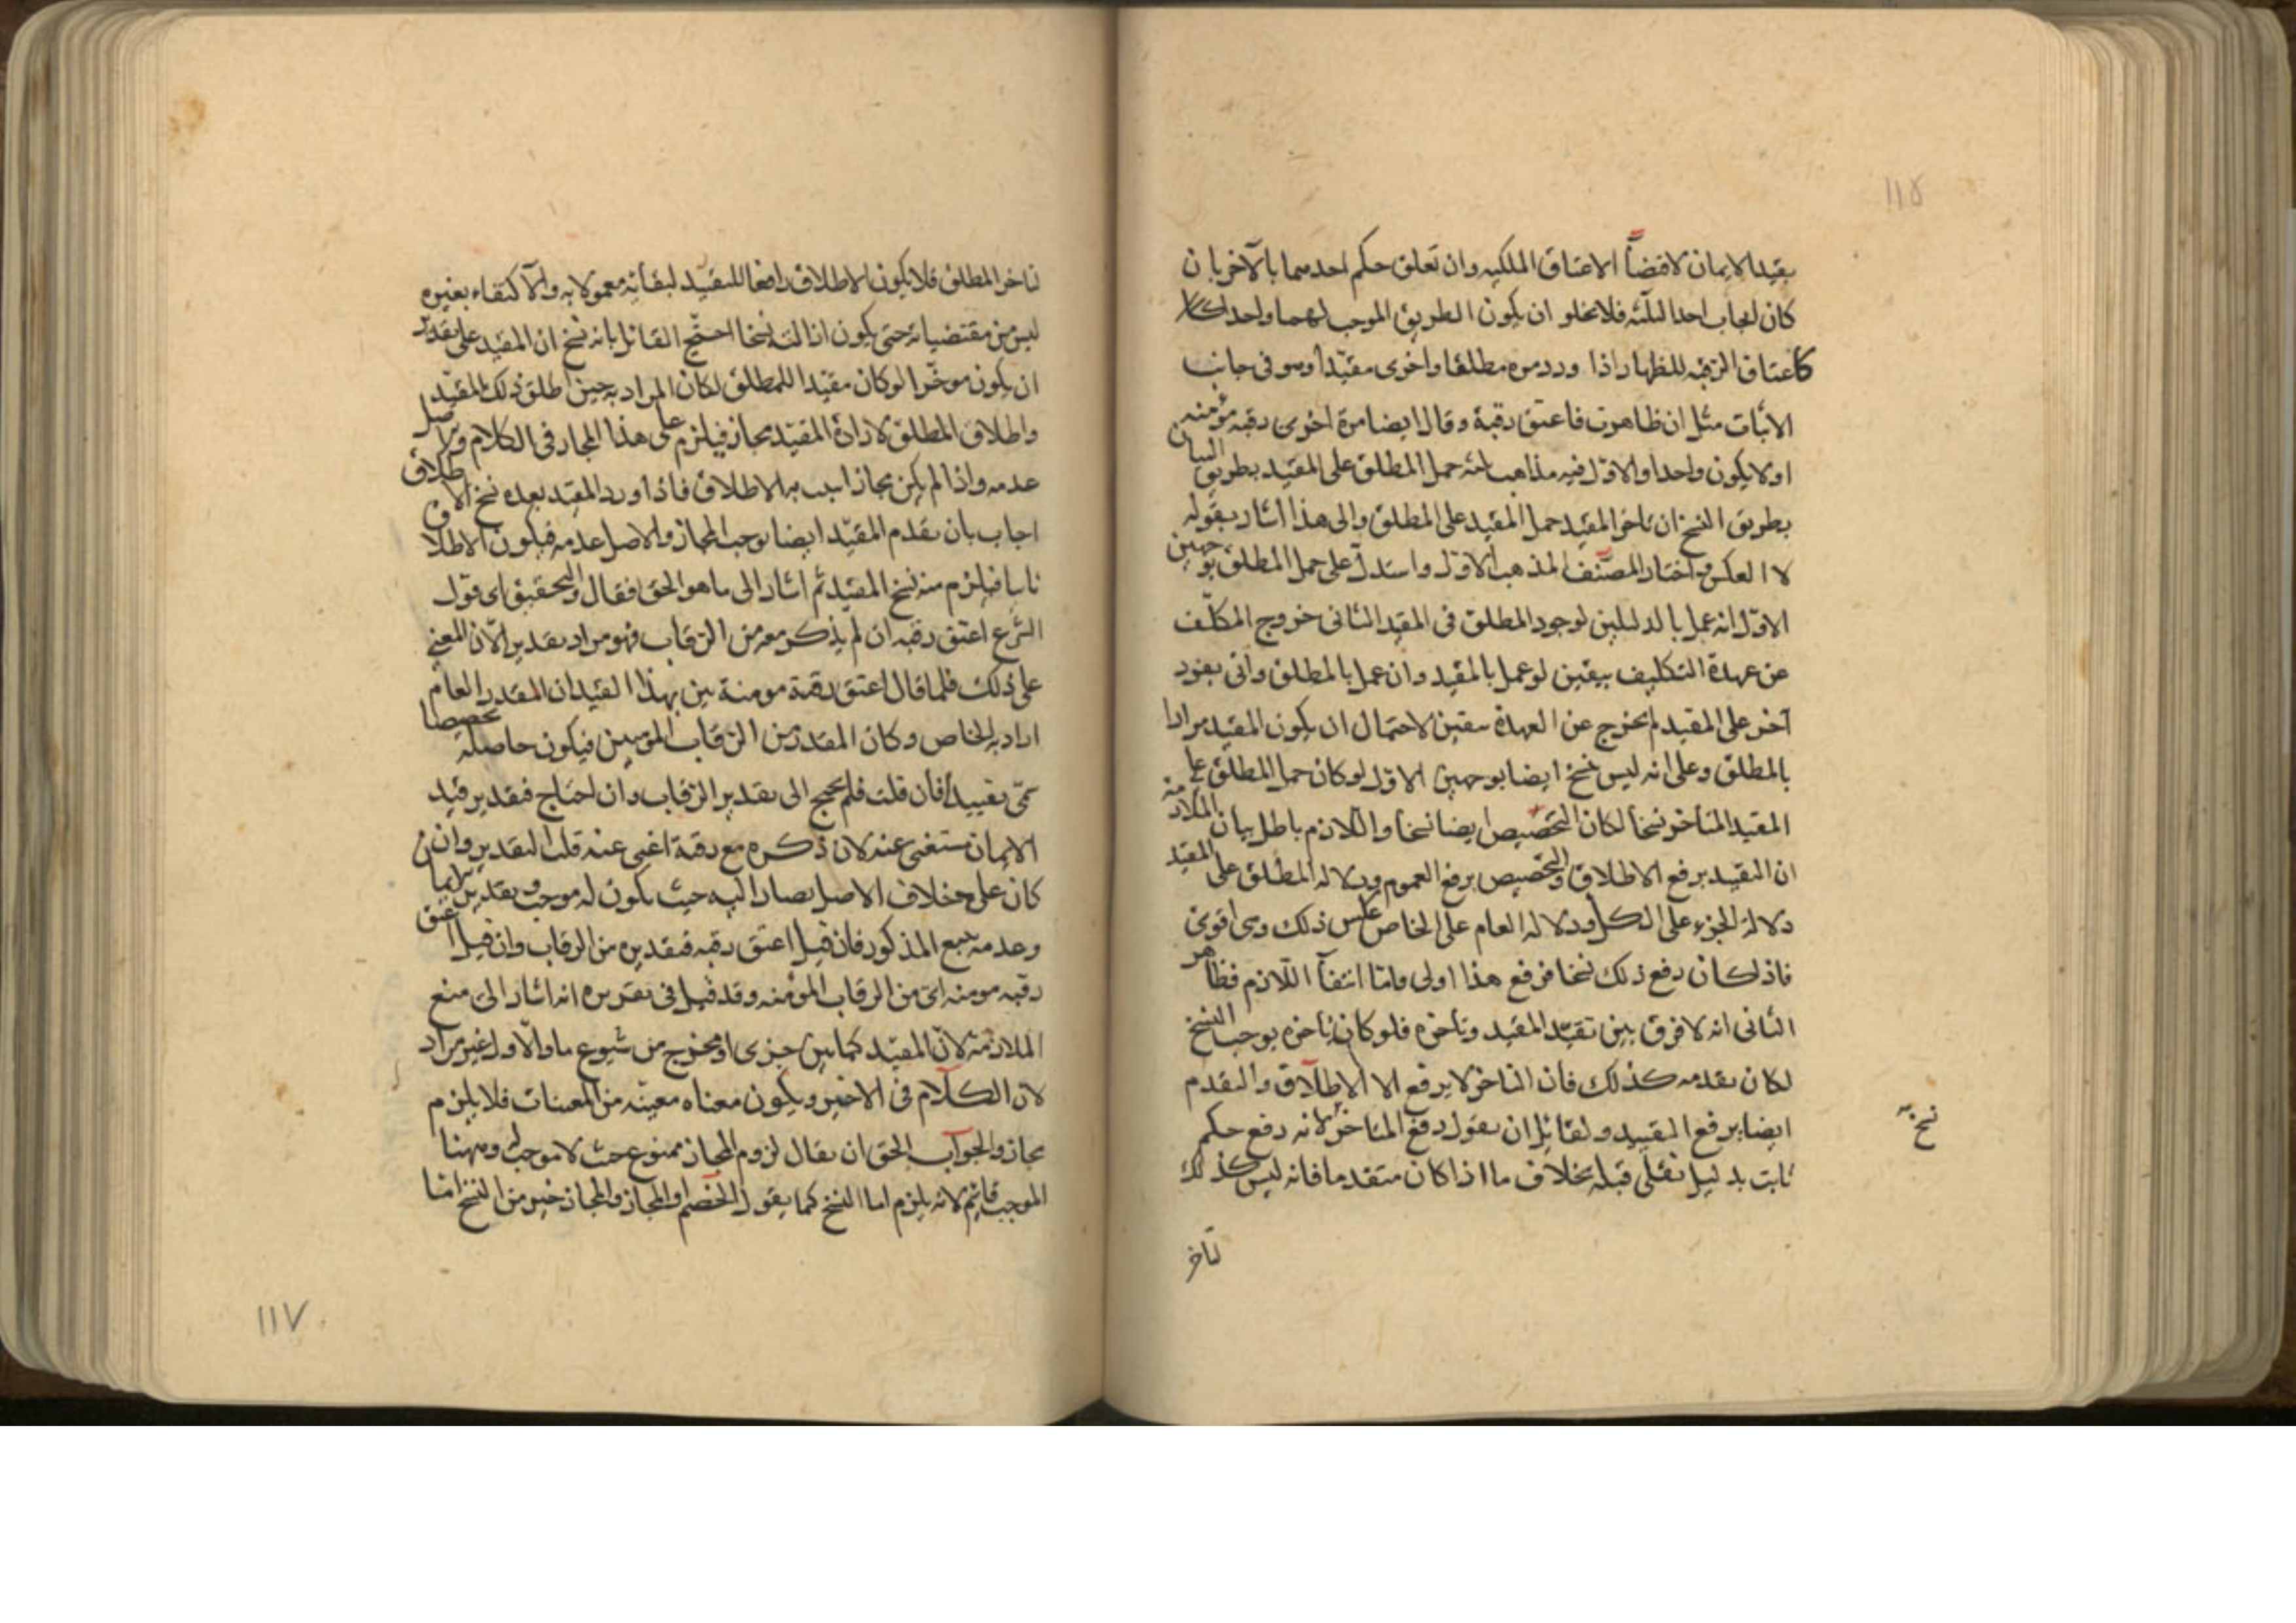 ١١٥
بقيد الايمان لاقتضآ الاعتاق الملكيه وان تعلق حكم احدهما بالآخر بان
كان ايجاب احد الثلثه فلا يخلو ان يكون الطريق الموجب لهما واحدا كلا
كاعتاق الرقبه للظهار اذا ورد مره مطلقا واخرى مقيدا وهو فى جانب
الاثبات مثل ان ظاهرت فاعتق رقبة وقال ايضا مرة اخرى رقبه مؤمنه
او لا يكون واحدا والاول فيه مذاهب ثلثه حمل المطلق على المقيد بطريق البيان
بطريق النسخ ان تاخر المقيد حمل المقيد على المطلق والى هذا اشار بقوله
لا العكس واختار المصنف المذهب الاول واستدل على حمل المطلق بوجهين
الاول انه عمل بالدليلين لوجود المطلق فى المقيد الثانى خروج المكلف
عن عهدة التكليف بيقين لو عمل بالمقيد وان عمل بالمطلق واتى بفرد
آخر على المقيد لم يخرج عن العهدة بيقين لاحتمال ان يكون المقيد مرادا
بالمطلق وعلى انه ليس نسخ ايضا بوجهين الاول لو كان حمل المطلق على
المقيد المتاخر نسخا لكان التخصيص ايضا نسخا واللازم باطل بيان الملازمه
ان التقييد يرفع الاطلاق والتخصيص يرفع العموم ودلاله المطلق على المقيد
دلالة الجزء على الكل ودلاله العام على الخاص عكس ذلك وهى اقوى
فاذا كان رفع ذلك نسخا فرفع هذا اولى واما انتفآ اللازم فظاهر
الثانى انه لا فرق بين تقيد المقيد وتاخره فلو كان تاخره يوجب النسخ
لكان تقدمه كذلك فان التاخر لا يرفع الا الاطلاق والتقدم
ايضا يرفع التقييد ولقائل ان يقول رفع المتاخر لانه رفع حكم
نسخ
ثابت بدليل نقلى قبله بخلاف ما اذا كان متقدما فانه ليس كذلك
تاخر
تاخر المطلق فلا يكون الاطلاق رافعا للتقييد لبقائه معمولا به والاكتفاء بغيره
ليس من مقتضياته حتى يكون ازالته نسخا احتج القائل بانه نسخ ان المقيد على تقدير
ان يكون موخرا لو كان مقيدا للمطلق لكان المراد به حين اطلق ذلك المقيد
واطلاق المطلق لارادة المقيد مجاز فيلزم على هذا المجاز فى الكلام والاصل
عدمه واذا لم يكن مجازا يجب به الاطلاق فاذا ورد المقيد بعده نسخ الاطلاق
اجاب بان تقدم المقيد ايضا يوجب المجاز والاصل عدمه فيكون الاطلاق
ناسخا فيلزم منه نسخ المقيد ثم اشار الى ما هو الحق فقال والتحقيق اى قول
الشرع اعتق رقبه ان لم يذكر معه من الرقاب فهو مراد بتقدير الآن المعنى
على ذلك فلما قال اعتق رقبة مومنة بين بهذا القيد ان المقدر العام
اراد به الخاص وكان المقدر من الرقاب المؤمنين فيكون حاصله تخصيصا
سمى تقييدا فان قلت فلم يحتج الى تقدير الرقاب وان احتاج فتقدير قيد
الايمان مستغنى عنه لان ذكره مع رقبة اغنى عنه قلت التقدير وان
كان على خلاف الاصل يصار اليه حيث يكون له موجب وتقدير من الايمان
وعدمه يتبع المذكور فان قيل اعتق رقبه فتقديره من الرقاب وان قيل اعتق
رقبه مومنه اى من الرقاب المؤمنه وقد قيل فى تقريره انه اشار الى منع
الملازمة لان المقيد كما بين جزى او مخرج من شيوع ما والاول غير مراد
لان الكلام فى الاخير ويكون معناه معينه من المعينات فلا يلزم
مجاز والجواب الحق ان يقال لزوم المجاز ممنوع حيث لا موجب له وههنا
الموجب قائم لانه يلزم اما النسخ كما يقول الخصم او المجاز والمجاز خير من النسخ اما
١١٧